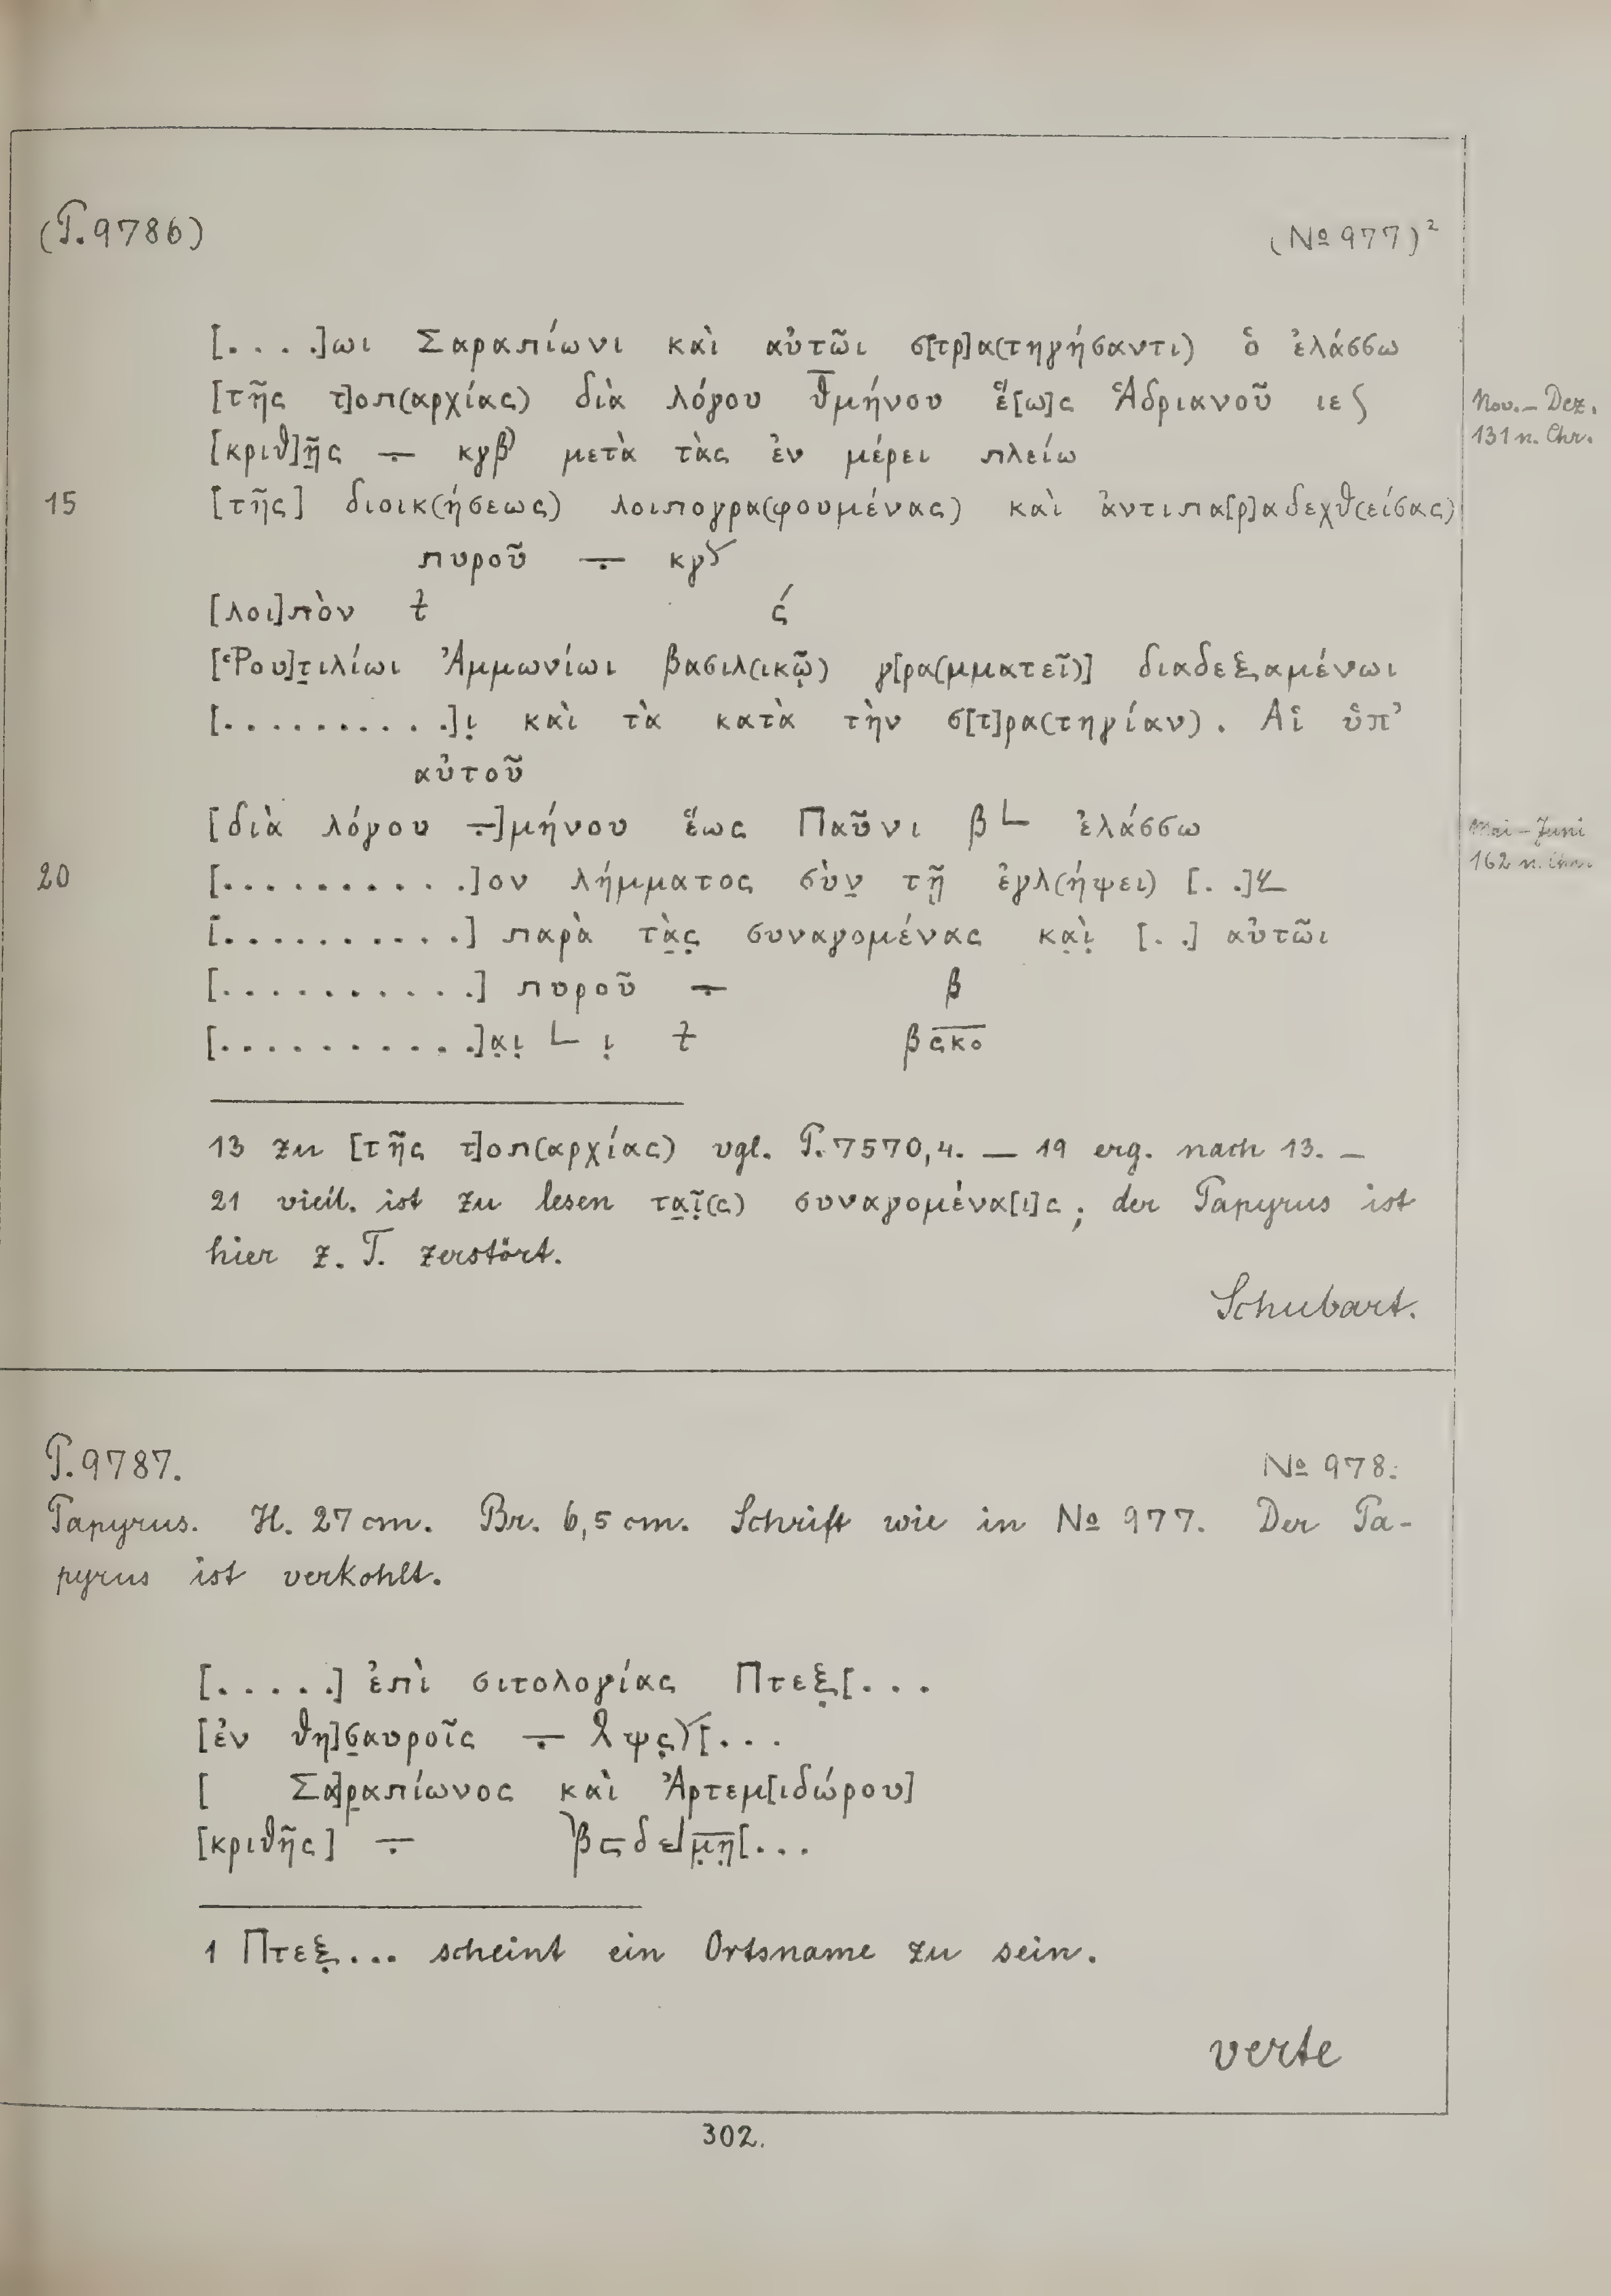 (P.9786) (№ 977)²
[. . . .]ωι Σαραπίωνι καὶ αὐτῶι σ[τρ]α(τηγήσαντι) ὁ ἐλάσσω
[τῆς τ]οπ(αρχίας) διὰ λόγου θ̅μήνου ἕ[ω]ς Ἁδριανοῦ ιεϚ Nov.–Dez.
131 n. Chr.
[κριθ]ῆ̣ς ⨪ κγβ' μετὰ τὰς ἐν μέρει πλείω
15 [τῆς] διοικ(ήσεως) λοιπογρα(φουμένας) καὶ ἀντιπα[ρ]αδεχθ(είσας)
πυροῦ ⨪ κγ
[λοι]πὸν ϛ́
[Ῥου]τ̣ιλίωι Ἀμμωνίωι βασιλ(ικῷ̣) γ[ρα(μματεῖ)] διαδεξαμένωι
[. . . . . . . . . .]ι̣ καὶ τὰ κατὰ τὴν σ[τ]ρα(τηγίαν). Αἱ ὑπ’
αὐτοῦ
[διὰ λόγου ⨪]μήνου ἕως Παῦνι β∟ ἐλάσσω Mai–Juni
162 n. Chr.
20 [. . . . . . . . . . .]ον λήμματος σὺν̣ τῇ ἐγλ(ήψει) [. .]
[. . . . . . . . . . .] παρὰ τὰ̣ς̣ συναγομένας κα̣ὶ̣ [. .] αὐτῶι
[. . . . . . . . . . .] πυροῦ ⨪ β
[. . . . . . . . . . .]α̣ι̣ ∟ ι̣ β ϛκο
13 zu [τῆς τ]οπ(αρχίας) vgl. P. 7570,4. — 19 erg. nach 13. —
21 vieil. ist zu lesen τα̣ῖ̣(ς) συναγομένα[ι]ς; der Papyrus ist
hier z. T. zerstört.
Schubart.
P.9787. № 978.
Papyrus. H. 27 cm. Br. 6,5 cm. Schrift wie in № 977. Der Pa-
pyrus ist verkohlt.
[. . . . .] ἐπὶ σιτολογίας Πτεξ̣[. . .
[ἐν θη]σ̣αυροῖς ⨪ λψϛ̣[. . .
[ Σα]ρ̣απίωνος καὶ Ἀρτεμ[ιδώρου]
[κριθῆς] ⨪ β δ μ̣η̣[. . .
1 Πτεξ̣... scheint ein Ortsname zu sein.
verte
302.